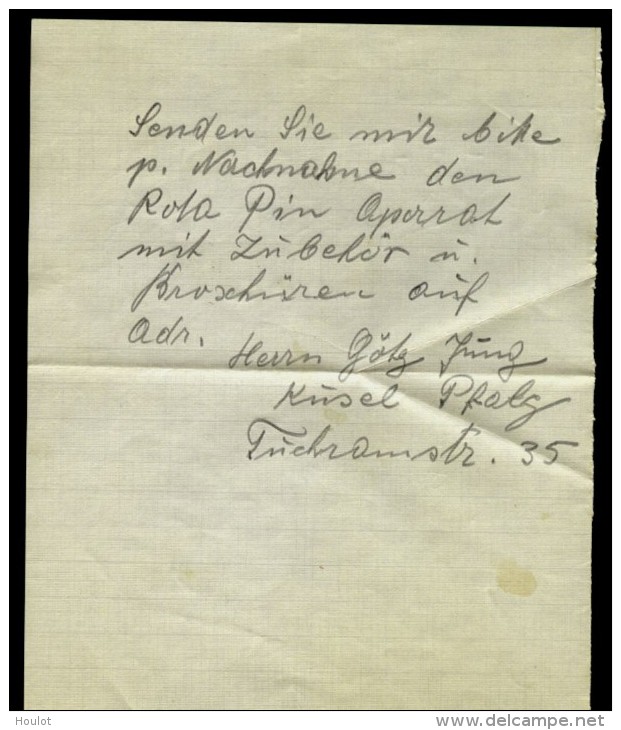 Senden Sie mir bitte
p. Nachnahme den
Rota Pin Aperrat
mit Zubehör u.
Broschüren auf
Adr.
Herrn Götz Jung
Kusel Pfalz
Tuchramstr. 35
Houlot
www.delcampe.net